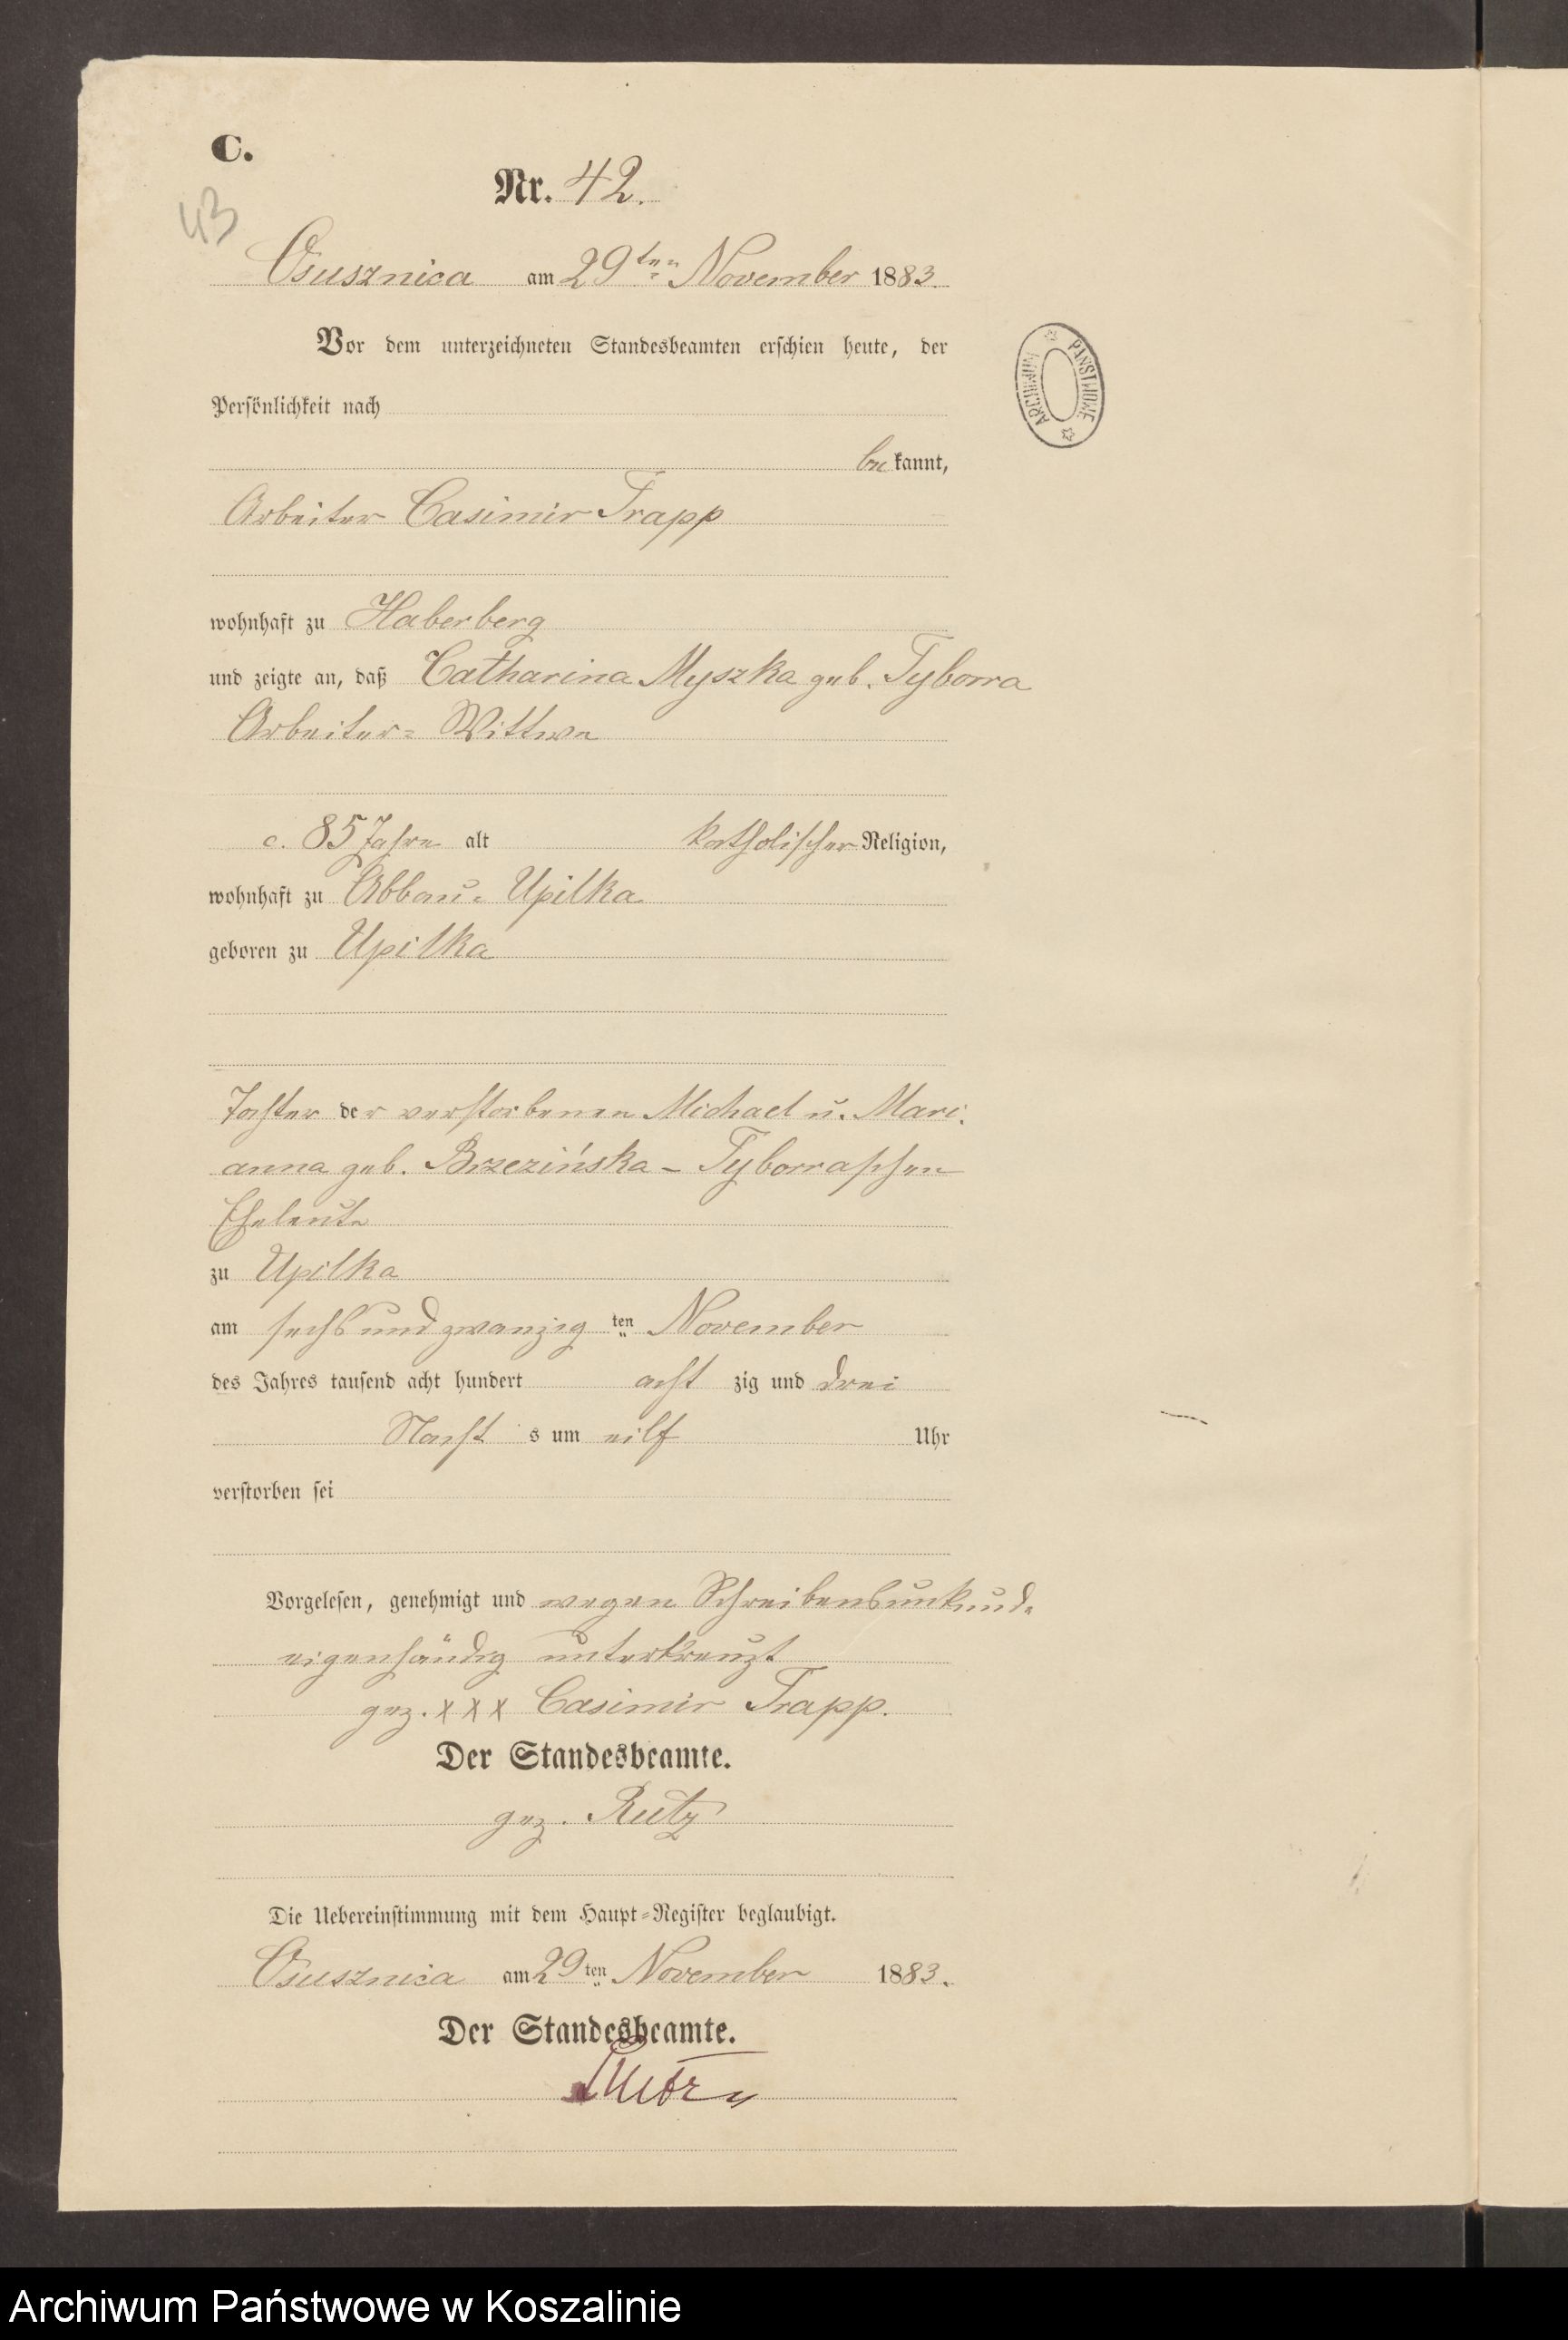 C.
Nr. 42.
43
Osusznica am 29ten November 1883.
Vor dem unterzeichneten Standesbeamten erschien heute, der
Persönlichkeit nach
bekannt,
Arbeiter Casimir Trapp
wohnhaft zu Haberberg
und zeigte an, daß Catharina Myszka geb. Tyborra
Arbeiter- Wittwe
c. 85 Jahre alt katholischer Religion,
wohnhaft zu Abbau- Upilka
geboren zu Upilka
Tochter der verstorbenen Michael u. Mari.
anna geb. Brzezińska - Tyborraschen
Eheleute
zu Upilka
am sechs und zwanzig ten November
des Jahres tausend acht hundert acht zig und drei
Nacht s um eilf Uhr
verstorben sei
Vorgelesen, genehmigt und wegen Schreibensunkunde
eigenhändig unterkreuzt
gez. XXX Casimir Trapp.
Der Standesbeamte.
gez. Rutz
Die Uebereinstimmung mit dem Haupt-Register beglaubigt.
Osusznica am 29ten November 1883.
Der Standesbeamte.
Rutz
ARCHIWUM PAŃSTWOWE
Archiwum Państwowe w Koszalinie